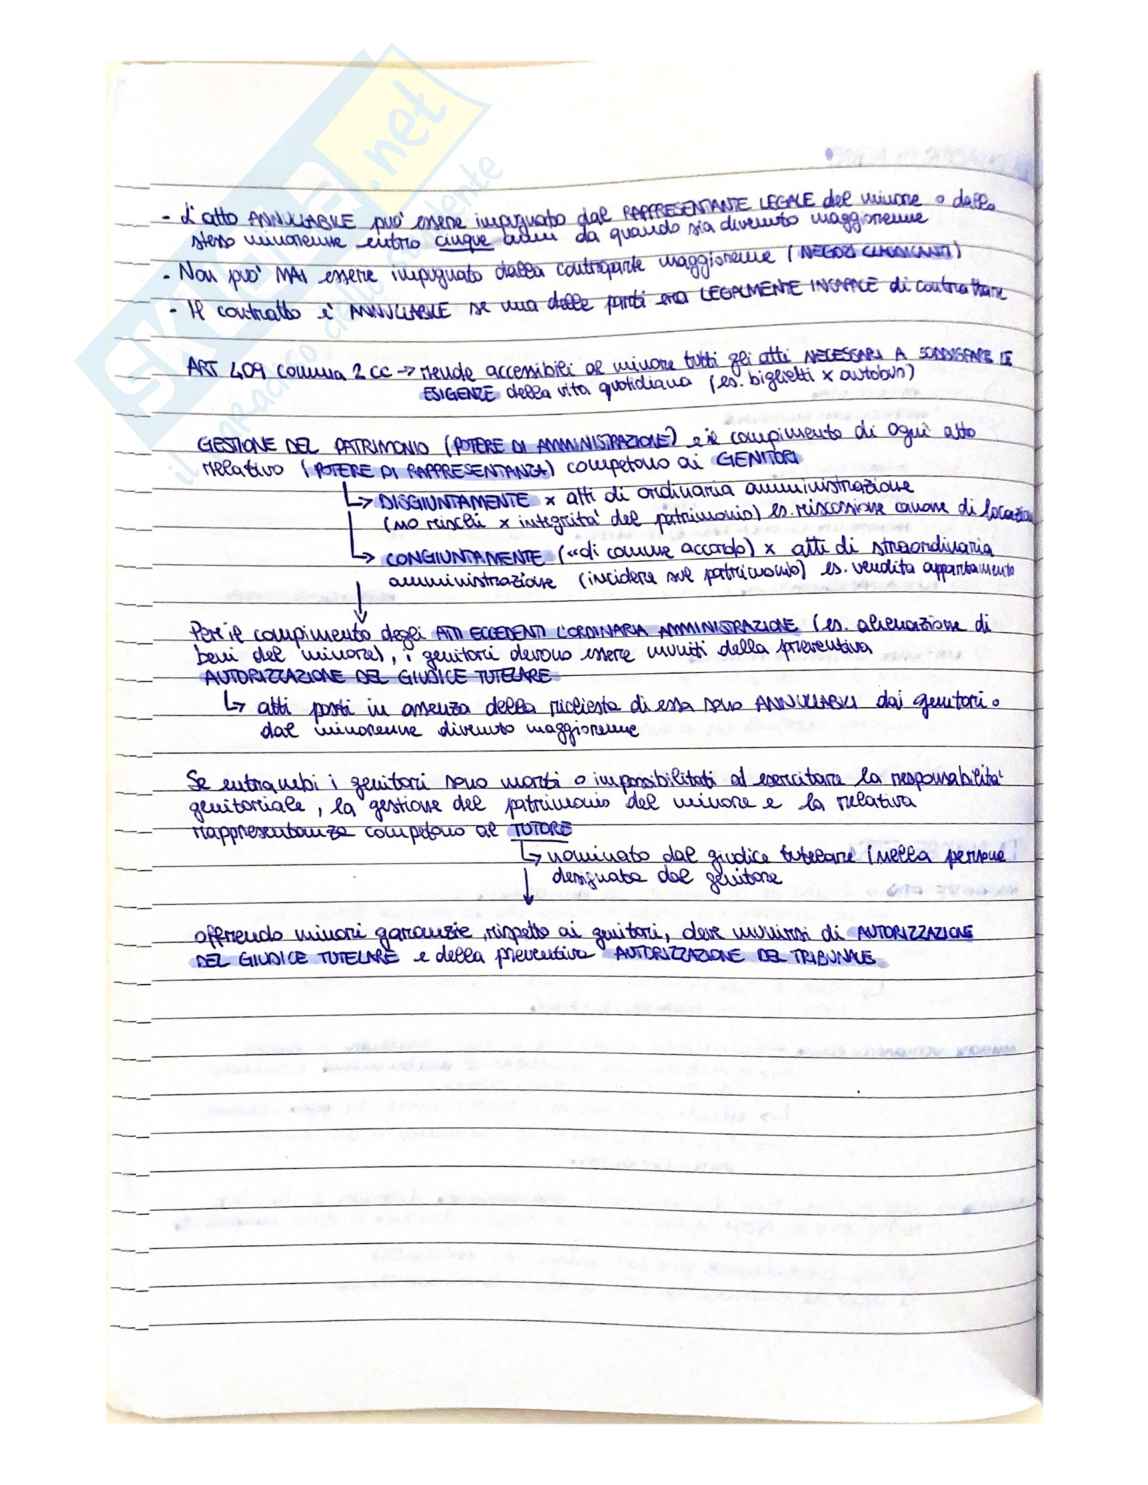 - L'atto ANNULLABILE può essere impugnato dal RAPPRESENTANTE LEGALE del minore o dallo
stesso minorenne entro cinque anni da quando sia divenuto maggiorenne
- Non può MAI essere impugnato dalla controparte maggiorenne (NEGOZI CLAUDICANTI)
- Il contratto è ANNULLABILE se una delle parti era LEGALMENTE INCAPACE di contrattare
ART 409 comma 2 cc -> rende accessibili al minore tutti gli atti NECESSARI A SODDISFARE LE
ESIGENZE della vita quotidiana (es. biglietti x autobus)
GESTIONE DEL PATRIMONIO (POTERE DI AMMINISTRAZIONE) e il compimento di ogni atto
relativo (POTERE DI RAPPRESENTANZA) competono ai GENITORI
DISGIUNTAMENTE x atti di ordinaria amministrazione
(no rischi x integrità del patrimonio) es. riscossione canone di locazione
CONGIUNTAMENTE ("di comune accordo) x atti di straordinaria
amministrazione (incidere sul patrimonio) es. vendita appartamento
Per il compimento degli ATTI ECCEDENTI L'ORDINARIA AMMINISTRAZIONE (es. alienazione di
beni del minore), i genitori devono essere muniti della preventiva
AUTORIZZAZIONE DEL GIUDICE TUTELARE
atti posti in assenza della richiesta di essa sono ANNULLABILI dai genitori o
dal minorenne divenuto maggiorenne
Se entrambi i genitori sono morti o impossibilitati ad esercitare la responsabilità
genitoriale, la gestione del patrimonio del minore e la relativa
rappresentanza competono al TUTORE
nominato dal giudice tutelare (nella persona
designata dal genitore
offrendo minori garanzie, rispetto ai genitori, deve munirsi di AUTORIZZAZIONE
DEL GIUDICE TUTELARE e della preventiva AUTORIZZAZIONE DEL TRIBUNALE